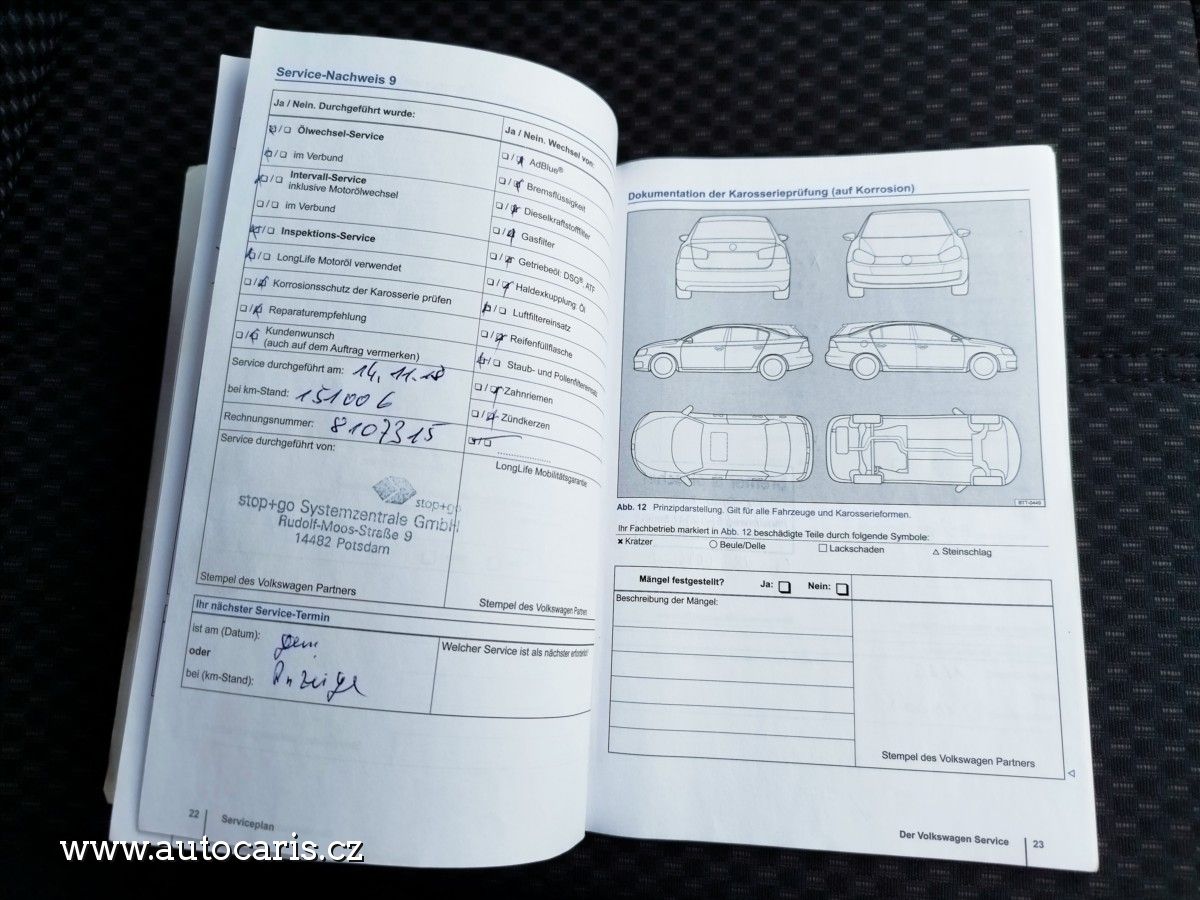 Service-Nachweis 9
Ja / Nein. Durchgeführt wurde:
Ölwechsel-Service
im Verbund
Intervall-Service
inklusive Motorölwechsel
im Verbund
Inspektions-Service
LongLife Motoröl verwendet
Korrosionsschutz der Karosserie prüfen
Reparaturempfehlung
Kundenwunsch
(auch auf dem Auftrag vermerken)
Service durchgeführt am: 14.11.18
bei km-Stand: 151006
Rechnungsnummer: 8107315
Service durchgeführt von:
stop+go
stop+go Systemzentrale GmbH
Rudolf-Moos-Straße 9
14482 Potsdam
Stempel des Volkswagen Partners
Ja / Nein. Wechsel von:
AdBlue®
Bremsflüssigkeit
Dieselkraftstofffilter
Gasfilter
Getriebeöl: DSG®, ATF
Haldexkupplung: Öl
Luftfiltereinsatz
Reifenfüllflasche
Staub- und Pollenfiltereinsatz
Zahnriemen
Zündkerzen
LongLife Mobilitätsgarantie
Stempel des Volkswagen Partners
Ihr nächster Service-Termin
ist am (Datum):
oder
bei (km-Stand): Anzeige
Welcher Service ist als nächster erforderlich?
22 Serviceplan
Dokumentation der Karosserieprüfung (auf Korrosion)
BTT-0449
Abb. 12 Prinzipdarstellung. Gilt für alle Fahrzeuge und Karosserieformen.
Ihr Fachbetrieb markiert in Abb. 12 beschädigte Teile durch folgende Symbole:
× Kratzer ○ Beule/Delle □ Lackschaden △ Steinschlag
Mängel festgestellt? Ja: Nein:
Beschreibung der Mängel:
Stempel des Volkswagen Partners
Der Volkswagen Service 23
www.autocaris.cz